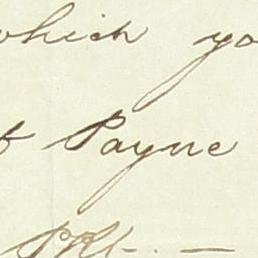 which yo
of Payne